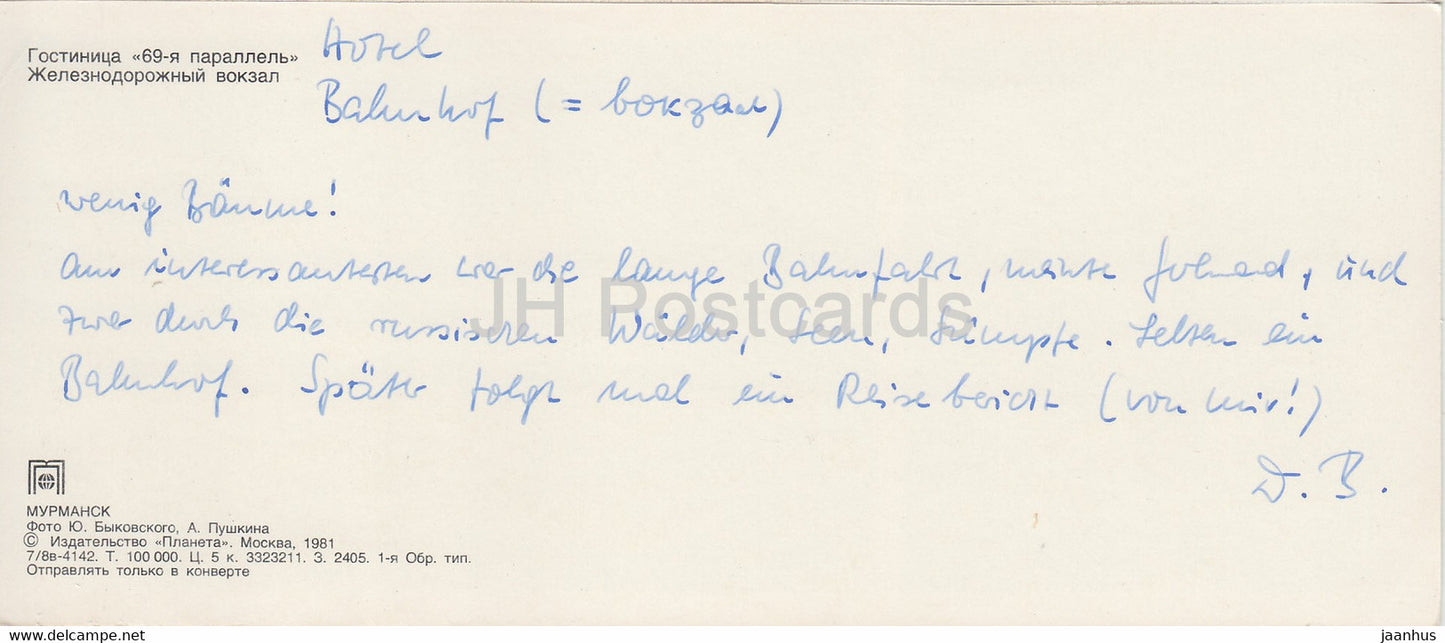 Гостиница «69-я параллель» Hotel
Железнодорожный вокзал Bahnhof (= вокзал)
wenig Bäume!
am interessantesten war die lange Bahnfahrt, meinte Johned, und
zwar durch die russischen Wälder, Seen, Sümpfe. Selten ein
Bahnhof. Später folgt mal ein Reisebericht (von mir!)
D. B.
JH Postcards
МУРМАНСК
Фото Ю. Быковского, А. Пушкина
© Издательство «Планета». Москва, 1981
7/8в-4142. Т. 100 000. Ц. 5 к. 3323211. З. 2405. 1-я Обр. тип.
Отправлять только в конверте
www.delcampe.net
jaanhus